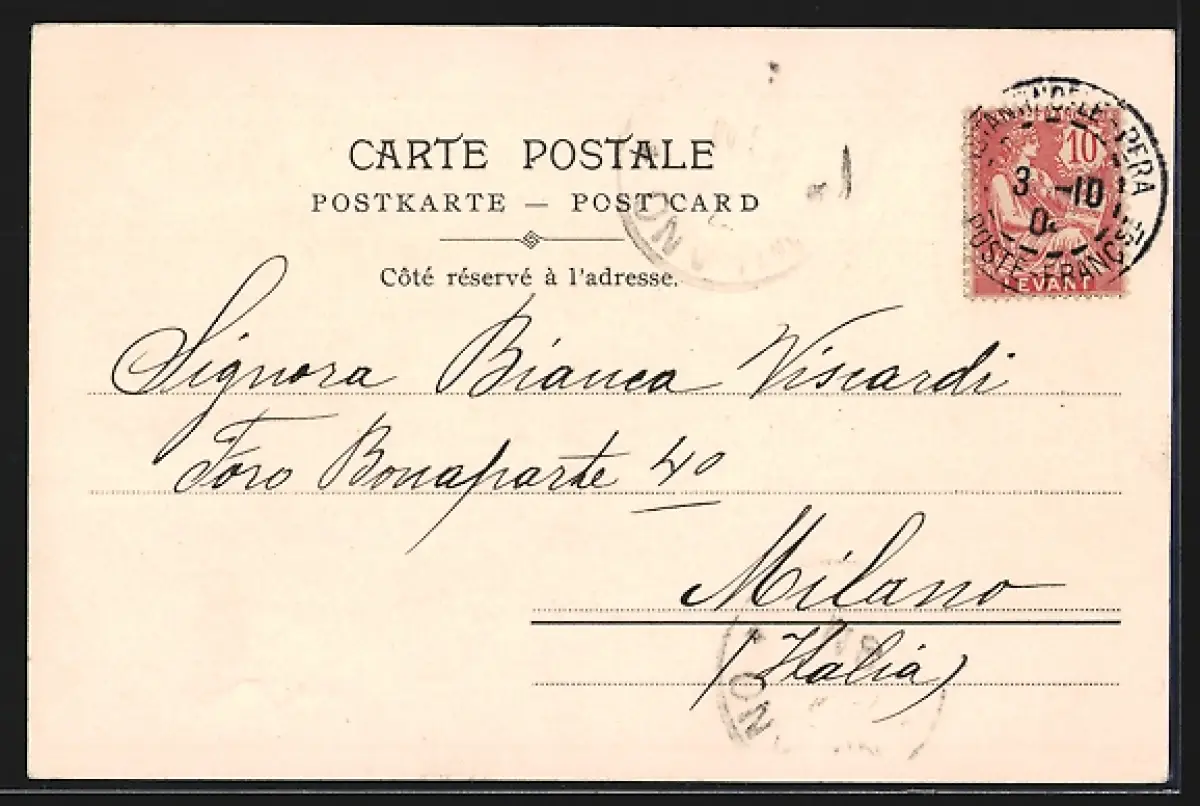 CARTE POSTALE
POSTKARTE — POST CARD
Côté réservé à l'adresse.
10
LEVANT
PERA
3 -10
POSTE FRANCSE
Signora Bianca Viscardi
Foro Bonaparte 40
Milano
(Italia)